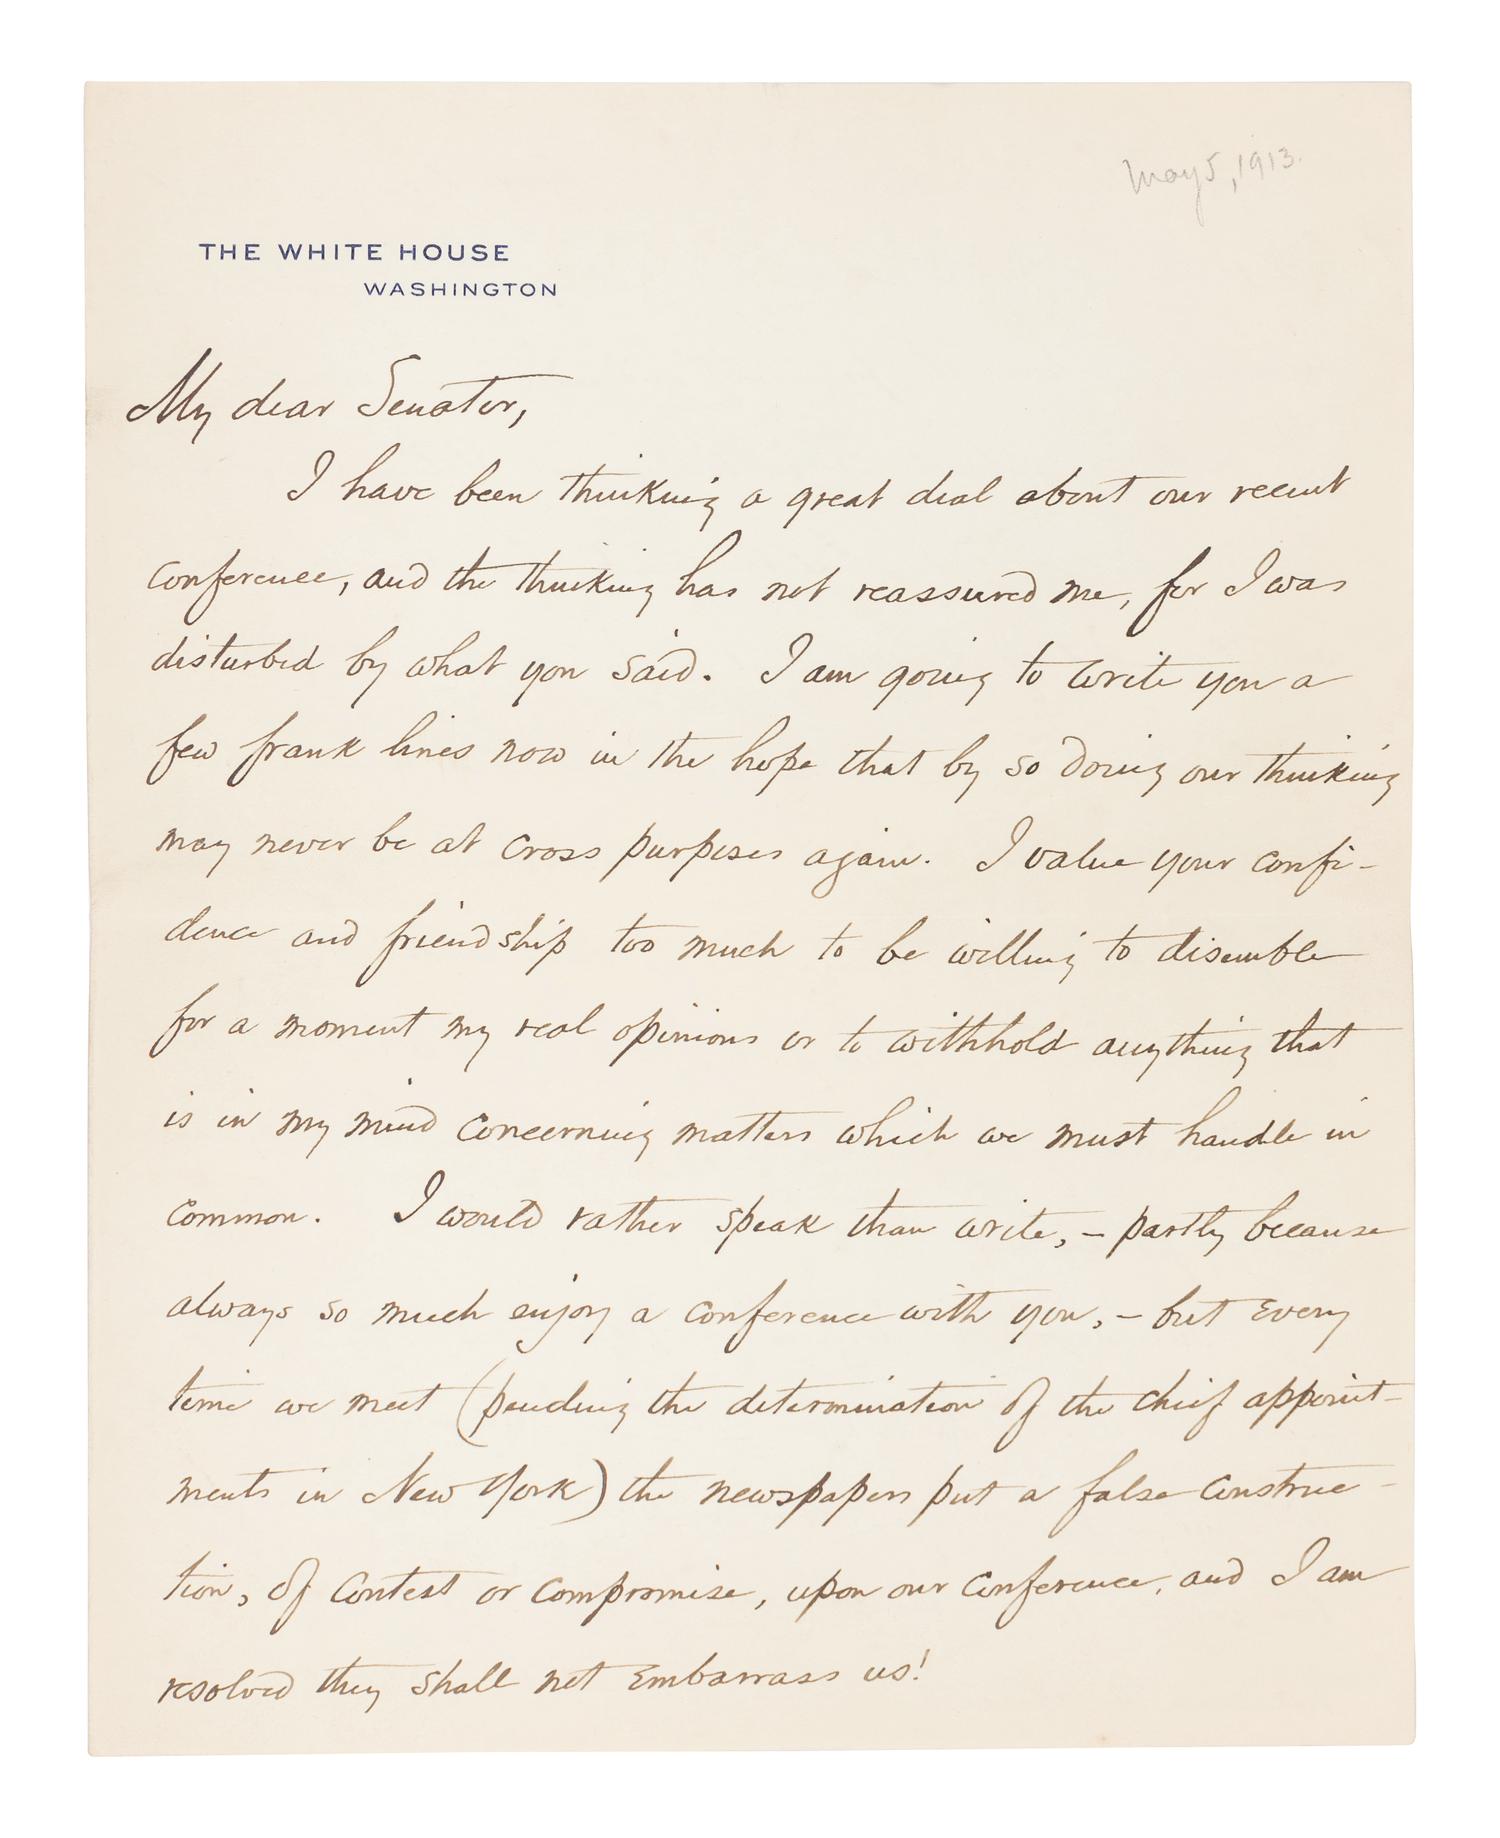 May 5, 1913.
THE WHITE HOUSE
WASHINGTON
My dear Senator,
I have been thinking a great deal about our recent
conference, and the thinking has not reassured me, for I was
disturbed by what you said. I am going to write you a
few frank lines now in the hope that by so doing our thinking
may never be at cross purposes again. I value your confi-
dence and friendship too much to be willing to disemble
for a moment my real opinions or to withhold anything that
is in my mind concerning matters which we must handle in
common. I would rather speak than write, – partly because
always so much enjoy a conference with you, – but every
time we meet (pending the determination of the chief appoint-
ments in New York) the newspapers put a false construc-
tion, of contest or compromise, upon our conference, and I am
resolved they shall not embarrass us!